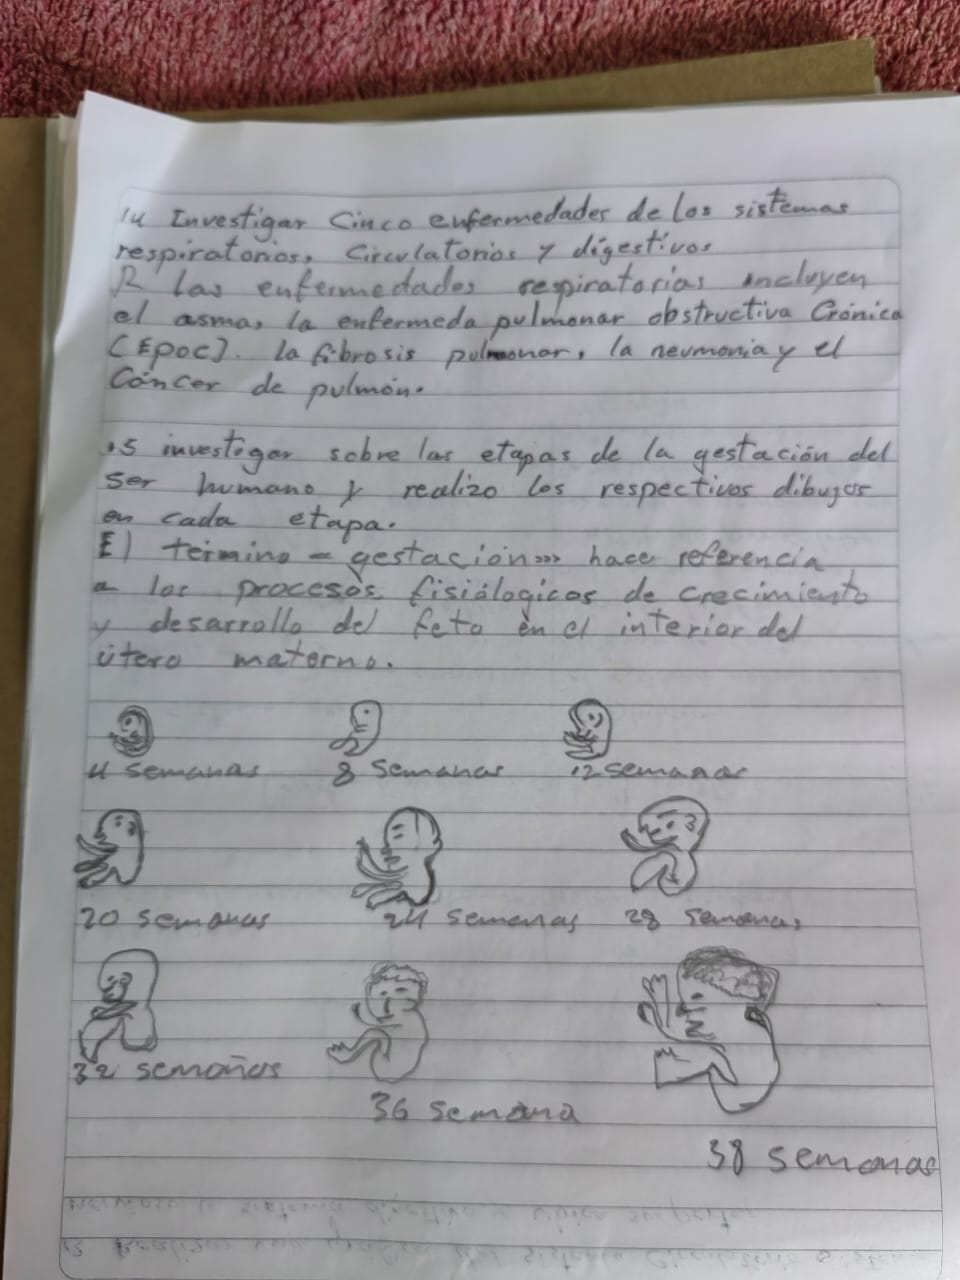 14 Investigar Cinco enfermedades de los sistemas
respiratorios, Circulatorios y digestivos
R las enfermedades respiratorias incluyen
el asma, la enfermeda pulmonar obstructiva Crónica
(Epoc). la fibrosis pulmonar, la neumonia y el
Cáncer de pulmón.
15 investigar sobre las etapas de la gestación del
ser humano y realizo los respectivos dibujos
en cada etapa.
El término = gestación»» hace referencia
a los procesos fisiólogicos de crecimiento
y desarrollo del feto en el interior del
útero materno.
4 semanas 8 semanas 12 semanas
20 semanas 24 semanas 28 semanas
32 semañas
36 semana
38 semanas